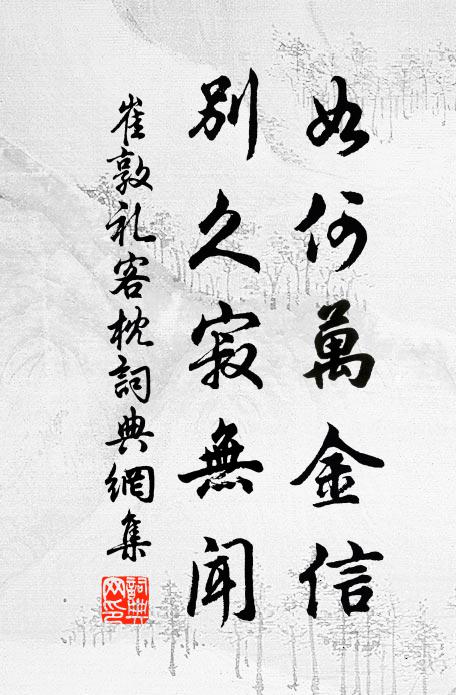 如何萬金信
别久寂無聞
崔敦礼客枕詞典網集